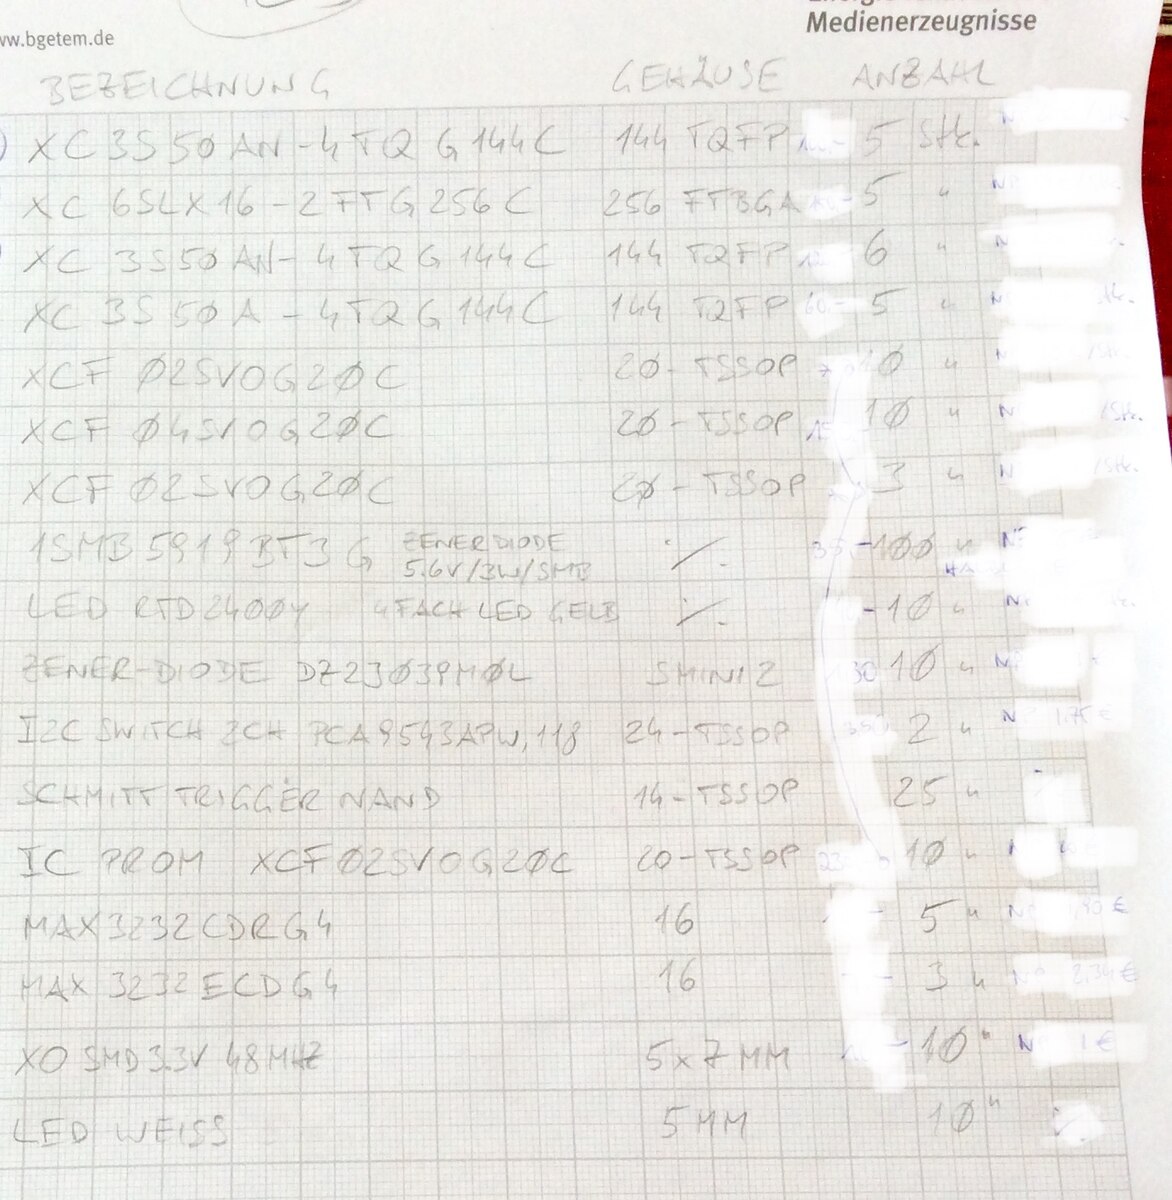 www.bgetem.de
Medienerzeugnisse
BEZEICHNUNG GEHÄUSE ANZAHL
XC3S50AN-4TQG144C 144 TQFP 5 Stk.
XC 6SLX16-2FTG256C 256 FTBGA 5 "
XC 3S50AN-4TQG144C 144 TQFP 6 "
XC 3S50A-4TQG144C 144 TQFP 60,- 5 " Stk.
XCF Ø2SVOG2ØC 2Ø-TSSOP 1Ø " /Stk.
XCF Ø4SVOG2ØC 2Ø-TSSOP 1Ø " /Stk.
XCF Ø2SVOG2ØC 2Ø-TSSOP 3 " /Stk.
1SMB5919BT3G ZENERDIODE ·/. 35,- 1ØØ "
5.6V/3W/SMB
LED RTD24ØØY 4FACH LED GELB ·/. 1Ø "
ZENER-DIODE DZ23Ø39MØL SMINI2 30 1Ø " NP
I2C SWITCH 2CH PCA9543APW,118 24-TSSOP 2 " NP 1,75 €
SCHMITT TRIGGER NAND 14-TSSOP 25 "
IC PROM XCFØ2SVOG2ØC 20-TSSOP 1Ø "
MAX3232CDRG4 16 5 " €
MAX 3232ECDG4 16 3 " NP 2,34 €
XO SMD 3.3V 48MHZ 5x7MM 1Ø " 1 €
LED WEISS 5MM 1Ø "